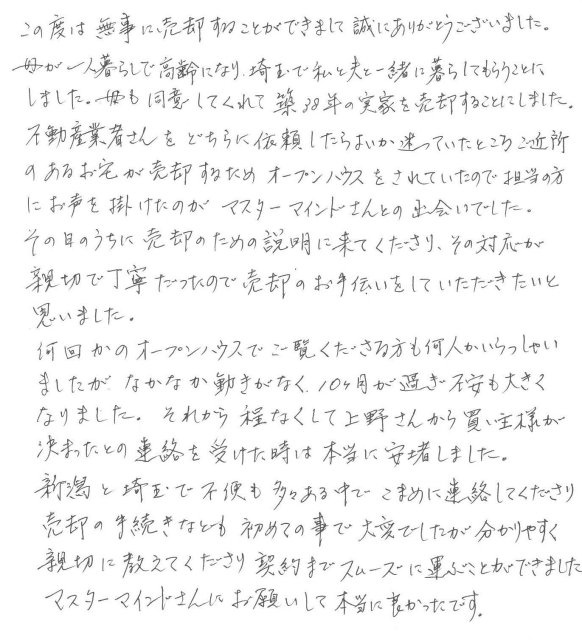 この度は無事に売却することができまして誠にありがとうございました。
母が一人暮らしで高齢になり、埼玉で私と夫と一緒に暮らしてもらうことに
しました。母も同意してくれて築38年の実家を売却することにしました。
不動産業者さんをどちらに依頼したらよいか迷っていたところご近所
のあるお宅が売却するためオープンハウスをされていたので担当の方
にお声を掛けたのがマスターマインドさんとの出会いでした。
その日のうちに売却のための説明に来てくださり、その対応が
親切で丁寧だったので売却のお手伝いをしていただきたいと
思いました。
何回かのオープンハウスでご覧くださる方も何人かいらっしゃい
ましたがなかなか動きがなく、10ヶ月が過ぎ不安も大きく
なりました。それから程なくして上野さんから買い主様が
決まったとの連絡を受けた時は本当に安堵しました。
新潟と埼玉で不便も多々ある中でこまめに連絡してくださり
売却の手続きなども初めての事で大変でしたが分かりやすく
親切に教えてくださり契約までスムーズに運ぶことができました
マスターマインドさんにお願いして本当に良かったです。